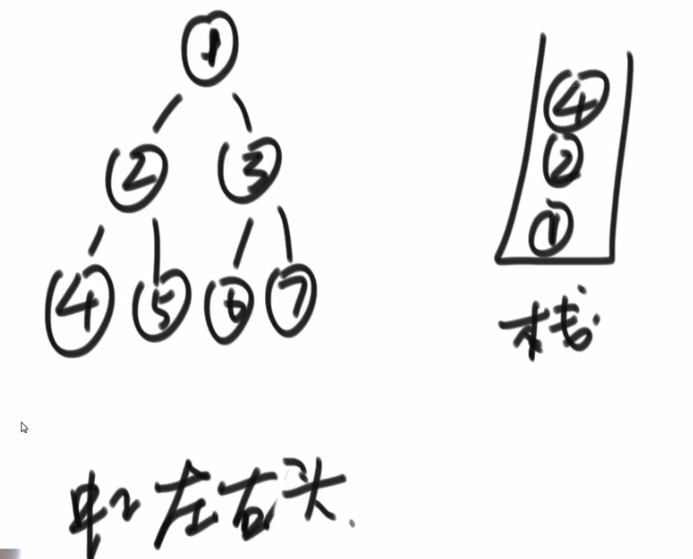 1
2 3
4 5 6 7
4
2
1
栈
左右头